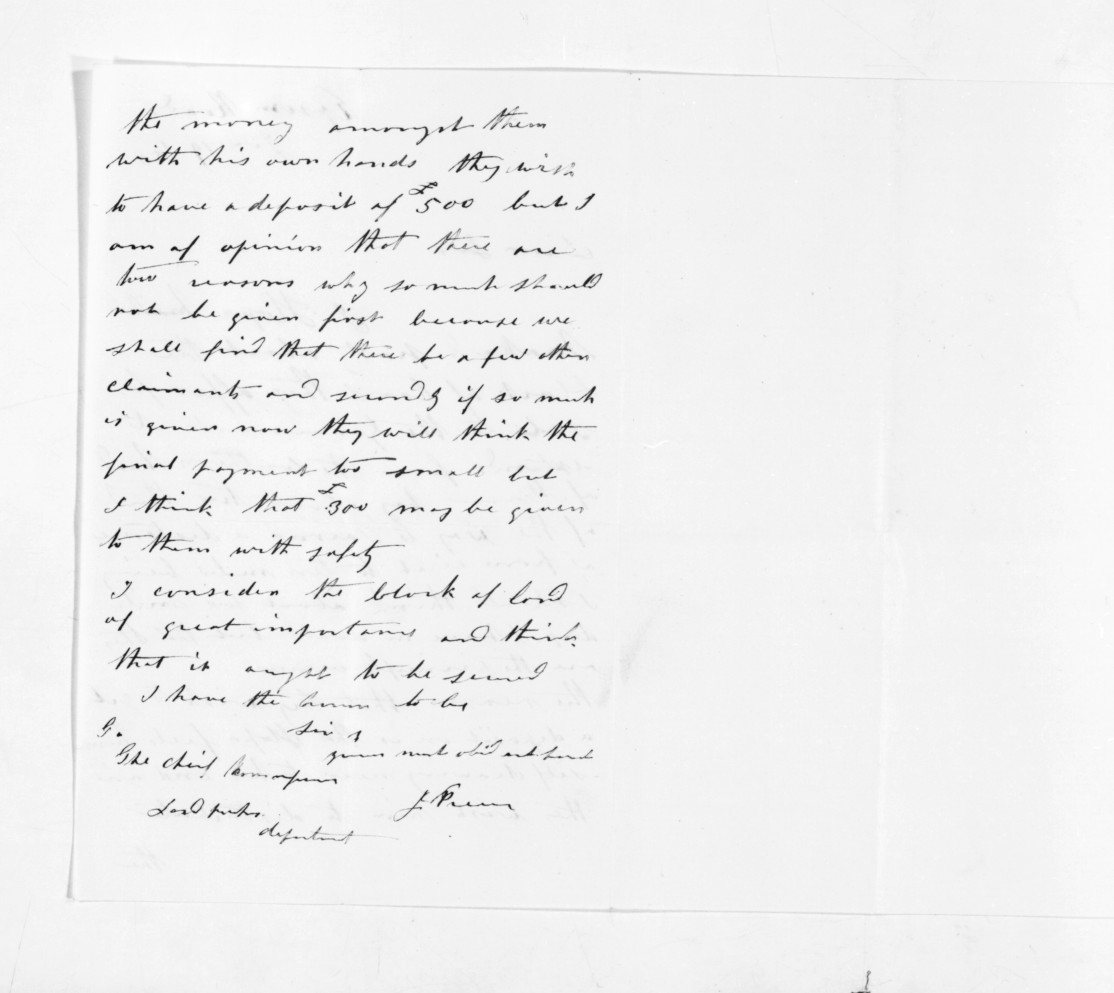 the money amongst them
with his own hands they wish
to have a deposit of £500 but I
am of opinion that there are
two reasons why so much should
not be given first because we
shall find that there be a few other
claimants and secondly if so much
is given now they will think the
final payment too small but
I think that £300 may be given
to them with safety
I consider the block of land
of great importance and think
that it aught to be secured
I have the honor to be
Sir
your most obd
The Chief Commissioner
Land purchs
department